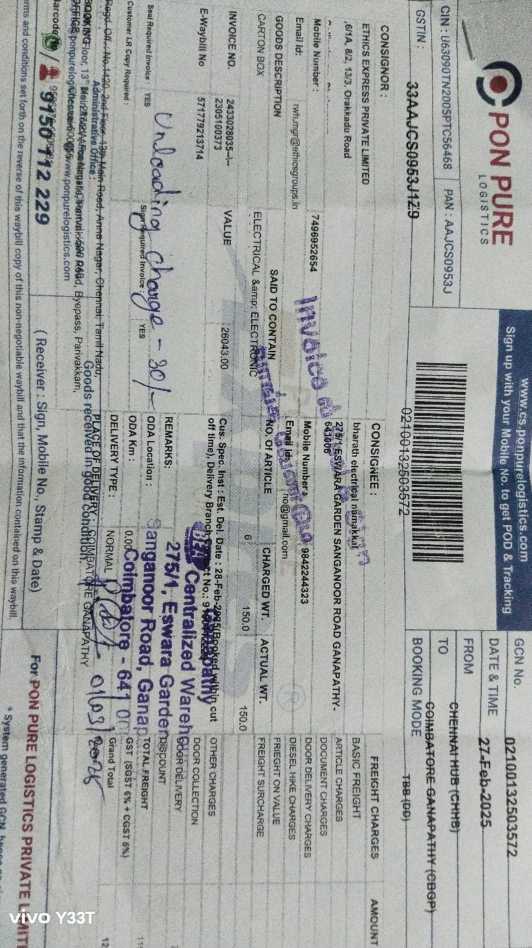 PON PURE
LOGISTICS
www.cs.ponpurelogistics.com
Sign up with your Mobile No. to get POD & Tracking
CIN : U63090TN2005PTC56468 PAN : AAJCS0953J
GSTIN : 33AAJCS0953J1Z9
02100132503572
GCN No. 02100132503572
DATE & TIME 27-Feb-2025
FROM CHENNAI HUB (CHHB)
TO COIMBATORE GANAPATHY (CBGP)
BOOKING MODE TBB (DD)
CONSIGNOR :
ETHICS EXPRESS PRIVATE LIMITED
,6/1A, 8/2, 13/3, Orakkadu Road
Mobile Number : 7496952654
Email id: rwh.mgr@ethicsgroups.in
CONSIGNEE :
bharath electrical namakkal
275/1 ESWARA GARDEN SANGANOOR ROAD GANAPATHY-
641006
Mobile Number : 9842244323
Email id: no@gmail.com
GOODS DESCRIPTION SAID TO CONTAIN NO. Of ARTICLE CHARGED WT. ACTUAL WT.
CARTON BOX ELECTRICAL &amp; ELECTRONIC 6 150.0 150.0
INVOICE NO. 2433028035--/--
2305100373
VALUE : 26043.00
E-Waybill No 571779213714
Cus. Spec. Inst : Est. Del. Date : 28-Feb-2025(Booked within cut
off time), Delivery Branch
Seal Required Invoice : YES
Sign Required Invoice : YES
Customer LR Copy Required :
Unloading charge - 30/-
REMARKS:
ODA Location :
ODA Km : 0.00
DELIVERY TYPE : NORMAL
PLACE OF DELIVERY : COIMBATORE GANAPATHY
Centralized Wareh
275/1, Eswara Garden
Sanganoor Road, Ganap
Coimbatore - 641 0
FREIGHT CHARGES AMOUN
BASIC FREIGHT
ARTICLE CHARGES
DOCUMENT CHARGES
DOOR DELIVERY CHARGES
DIESEL HIKE CHARGES
FRIEGHT ON VALUE
FREIGHT SURCHARGE
OTHER CHARGES
DOOR COLLECTION
DOOR DELIVERY
DISCOUNT
TOTAL FREIGHT
GST (SGST 6% + CGST 6%)
Grand Total
Administrative Office :
Goods received in good condition.
9150 112 229
( Receiver : Sign, Mobile No., Stamp & Date)
For PON PURE LOGISTICS PRIVATE LIMIT
rms and conditions set forth on the reverse of this waybill copy of this non-negotiable waybill and that the information contained on this waybill.
* System generated GCN
vivo Y33T